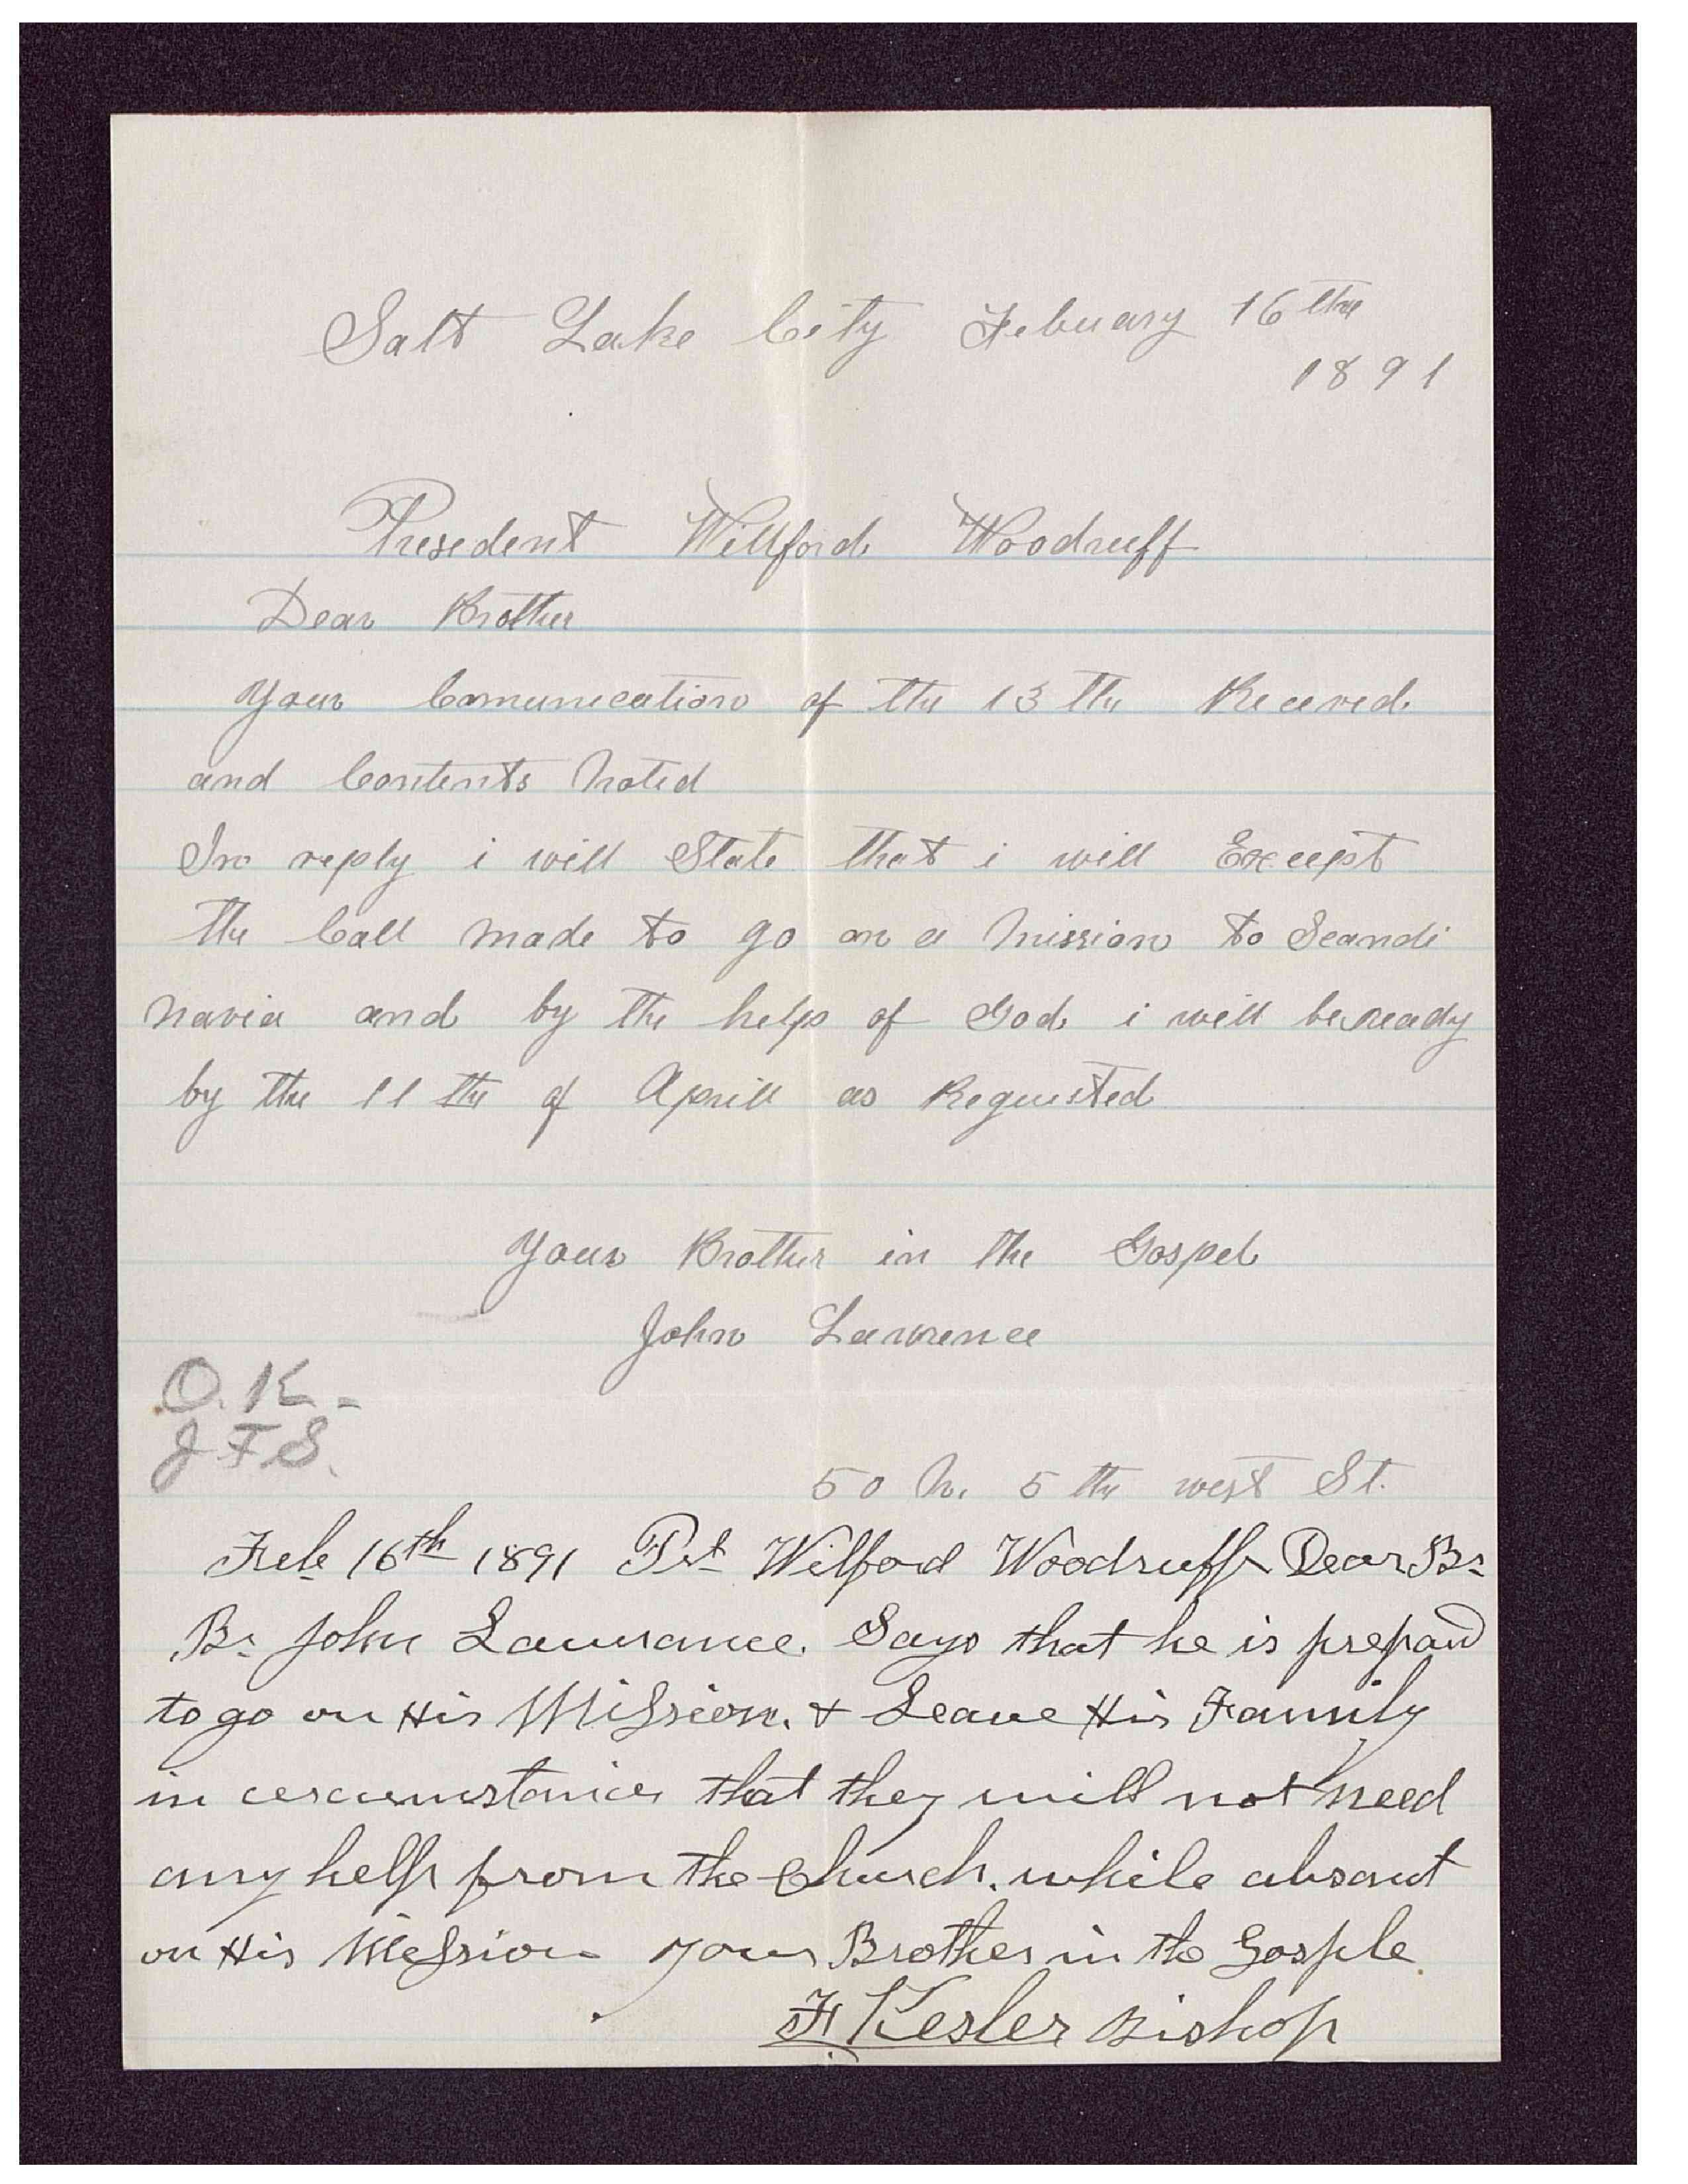 Salt Lake City Febuary 16 the
1891
Presedent Willford Woodruff
Dear Brother
Your Comunication of the 13 th Recieved
and Contents Noted
In reply i will State that i will Except
the Call made to go on a Mission to Scandi
navia and by the help of God i will be ready
by the 11 th of Aprill as Requested
Your Brother in the Gospel
John Lawrence
O.K.-
J F S.
50 N. 5 th west St.
Feb 16th 1891 Pst Wilford Woodruff Dear Br
Br John Laurance. Says that he is prepard
to go on His Mission. & Leave His Family
in cercumstances that they will not need
any help from the Church. while absant
on His Mission your Brother in the Gosple.
F Kesler Bishop